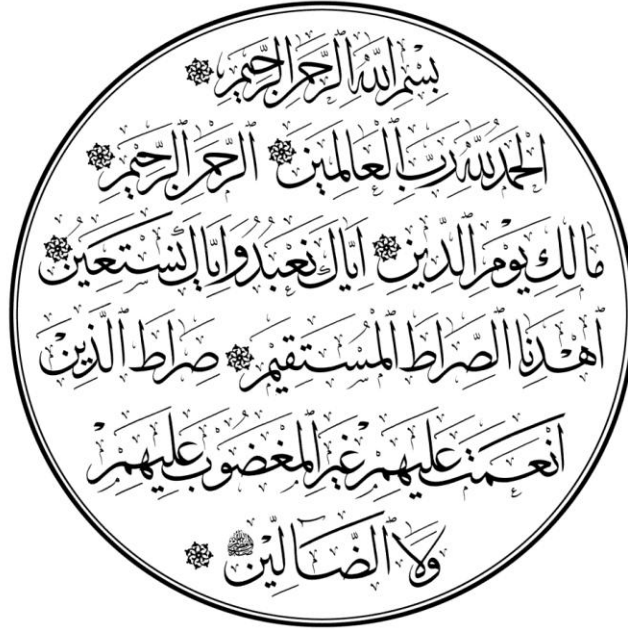 بِسْمِ اللّٰهِ الرَّحْمٰنِ الرَّحِيْمِ
الْحَمْدُ لِلّٰهِ رَبِّ الْعَالَمِيْنَ الرَّحْمٰنِ الرَّحِيْمِ
مَالِكِ يَوْمِ الدِّيْنِ اِيَّاكَ نَعْبُدُ وَاِيَّاكَ نَسْتَعِيْنُ
اِهْدِنَا الصِّرَاطَ الْمُسْتَقِيْمَ صِرَاطَ الَّذِيْنَ
اَنْعَمْتَ عَلَيْهِمْ غَيْرِ الْمَغْضُوْبِ عَلَيْهِمْ
وَلَا الضَّالِّيْنَ